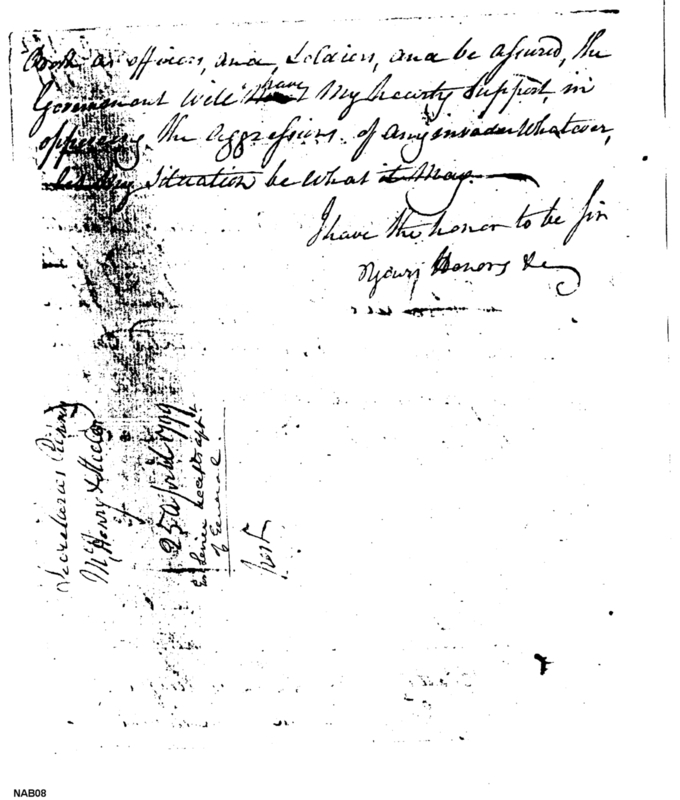 Both as officers, and Soldiers, and be assured, the
Government will have My hearty Support, in
opposeing the aggressions of any invader Whatever,
My Situation be what it May.
I have the honor to be Sir
Yours Honors &c
Secretaries
McHenry &
25 April 1799
General
NAB08